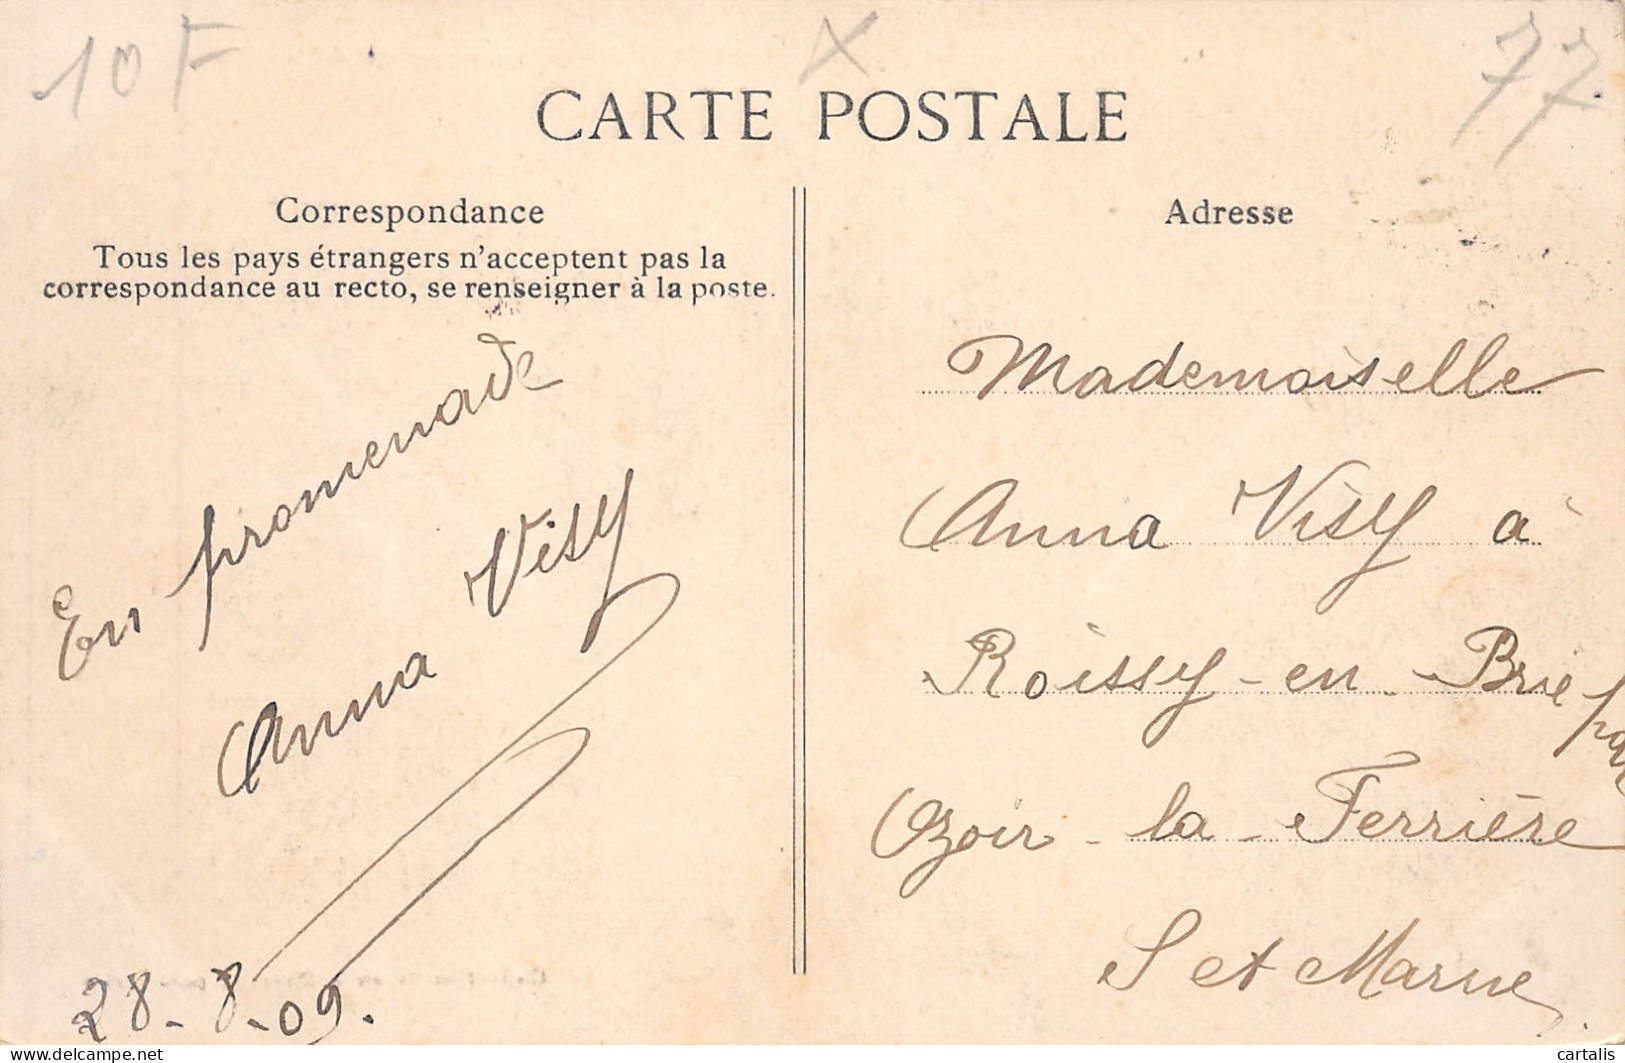 10F
X
77
CARTE POSTALE
Correspondance
Tous les pays étrangers n'acceptent pas la
correspondance au recto, se renseigner à la poste.
En promenade
Anna Visy
28-8-09.
Adresse
Mademoiselle
Anna Visy à
Roissy-en-Brie par
Ozoir-la-Ferrière
S et Marne
delcampe.net
cartalis